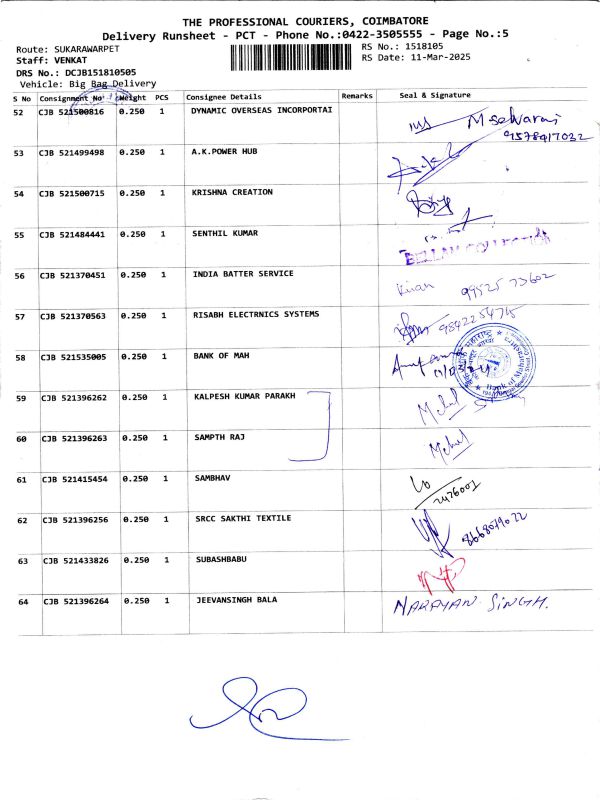 THE PROFESSIONAL COURIERS, COIMBATORE
Delivery Runsheet - PCT - Phone No.:0422-3505555 - Page No.:5
Route: SUKARAWARPET
RS No.: 1518105
Staff: VENKAT
RS Date: 11-Mar-2025
DRS No.: DCJB151810505
Vehicle: Big Bag Delivery
S No Consignment No Weight PCS Consignee Details Remarks Seal & Signature
52 CJB 521500816 0.250 1 DYNAMIC OVERSEAS INCORPORTAI M Selvaraj
9578417032
53 CJB 521499498 0.250 1 A.K.POWER HUB
54 CJB 521500715 0.250 1 KRISHNA CREATION
55 CJB 521484441 0.250 1 SENTHIL KUMAR
56 CJB 521370451 0.250 1 INDIA BATTER SERVICE Kiran 99525 73602
57 CJB 521370563 0.250 1 RISABH ELECTRNICS SYSTEMS 9842254715
58 CJB 521535005 0.250 1 BANK OF MAH
59 CJB 521396262 0.250 1 KALPESH KUMAR PARAKH Mehul
60 CJB 521396263 0.250 1 SAMPTH RAJ Mehul
61 CJB 521415454 0.250 1 SAMBHAV
2426001
62 CJB 521396256 0.250 1 SRCC SAKTHI TEXTILE 8668079022
63 CJB 521433826 0.250 1 SUBASHBABU
64 CJB 521396264 0.250 1 JEEVANSINGH BALA NARAYAN SINGH.